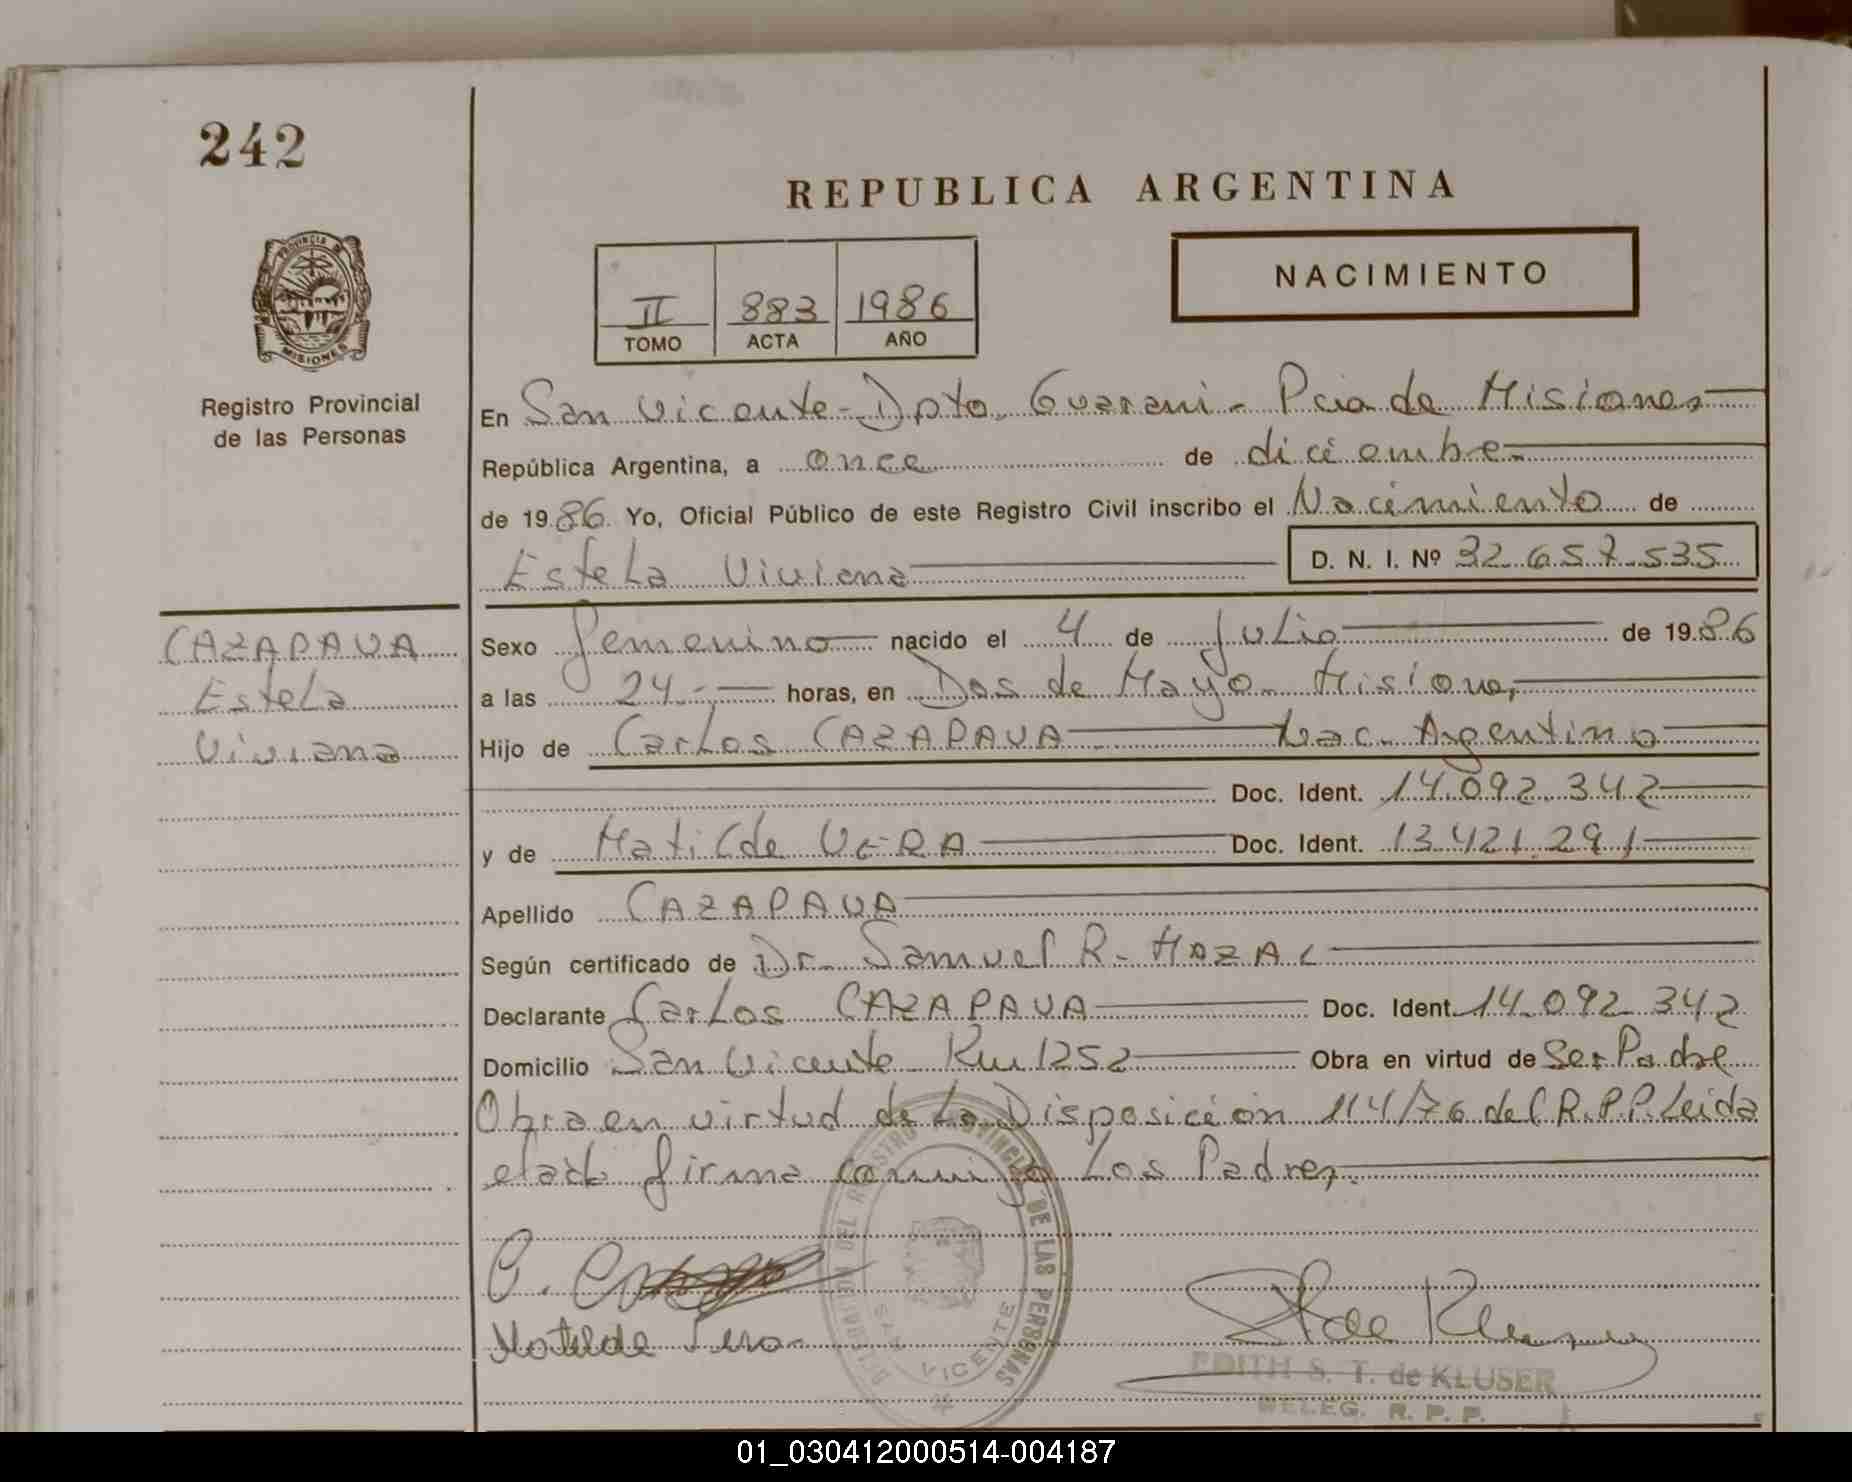 242
REPUBLICA ARGENTINA
NACIMIENTO
II 883 1986
TOMO ACTA AÑO
PROVINCIA DE
MISIONES
Registro Provincial
de las Personas
En San Vicente - Dpto. Guarani - Pcia de Misiones
República Argentina, a once de diciembre
de 1986 Yo, Oficial Público de este Registro Civil inscribo el Nacimiento de
Estela Viviana D. N. I. Nº 32.657.535
CAZAPAVA
Estela
Viviana
Sexo femenino nacido el 4 de Julio de 1986
a las 24.- horas, en Dos de Mayo - Misiones
Hijo de Carlos CAZAPAVA Nac. Argentino
Doc. Ident. 14.092.342
y de Matilde VERA Doc. Ident. 13.421.291
Apellido CAZAPAVA
Según certificado de Dr. Samuel R. MAZAL
Declarante Carlos CAZAPAVA Doc. Ident. 14.092.342
Domicilio San Vicente Km 1252 Obra en virtud de Ser Padre
Obra en virtud de la Disposición 114/76 del R.P.P. Leida
el acta firma conmigo Los Padres.
C.
Matilde Vera
DELEGACION DEL REGISTRO PROVINCIAL DE LAS PERSONAS
SAN VICENTE
de Kluser
EDITH S. T. de KLUSER
DELEG. R. P. P.
01_030412000514-004187